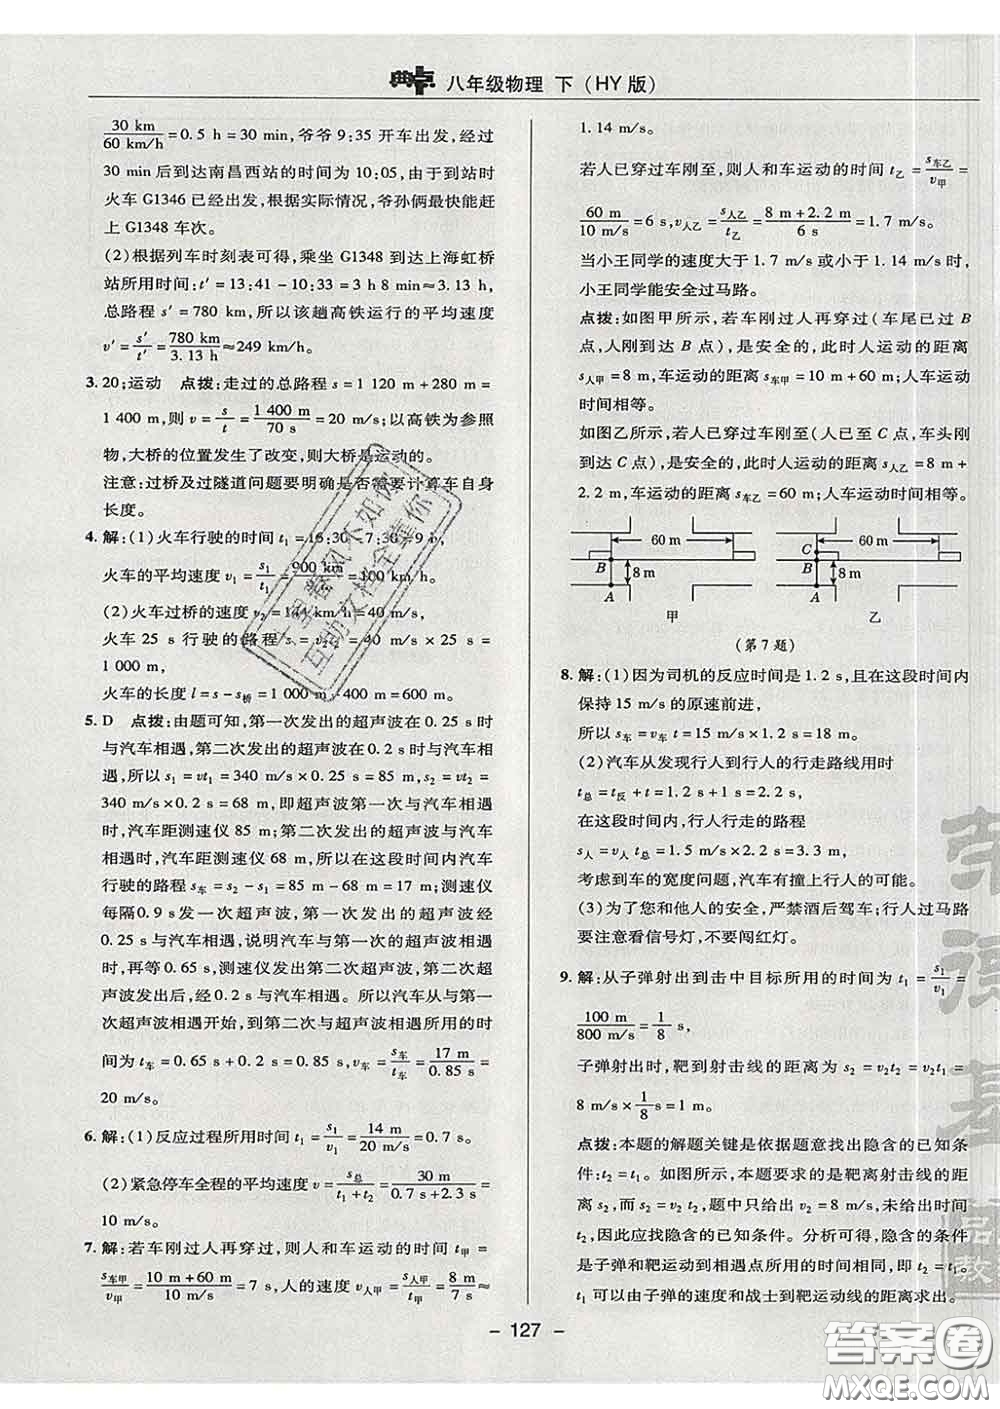 典点 八年级物理 下(HY版)
30 km/60 km/h=0.5 h=30 min,爷爷9:35开车出发,经过
30 min后到达南昌西站的时间为10:05,由于到站时
火车G1346已经出发,根据实际情况,爷孙俩最快能赶
上G1348车次。
(2)根据列车时刻表可得,乘坐G1348到达上海虹桥
站所用时间:t′=13:41-10:33=3 h 8 min≈3.13 h,
总路程s′=780 km,所以该趟高铁运行的平均速度
v′=s′/t′=780 km/3.13 h≈249 km/h。
3. 20;运动 点拨:走过的总路程s=1 120 m+280 m=
1 400 m,则v=s/t=1 400 m/70 s=20 m/s;以高铁为参照
物,大桥的位置发生了改变,则大桥是运动的。
注意:过桥及过隧道问题要明确是否需要计算车自身
长度。
4. 解:(1)火车行驶的时间t₁=16:30-7:30=9 h,
火车的平均速度v₁=s₁/t₁=900 km/9 h=100 km/h。
(2)火车过桥的速度v₂=144 km/h=40 m/s,
火车25 s行驶的路程s=v₂t₂=40 m/s×25 s=
1 000 m,
火车的长度l=s-s桥=1 000 m-400 m=600 m。
5. D 点拨:由题可知,第一次发出的超声波在0.25 s时
与汽车相遇,第二次发出的超声波在0.2 s时与汽车相
遇,所以s₁=vt₁=340 m/s×0.25 s=85 m,s₂=vt₂=
340 m/s×0.2 s=68 m,即超声波第一次与汽车相遇
时,汽车距测速仪85 m;第二次发出的超声波与汽车
相遇时,汽车距测速仪68 m,所以在这段时间内汽车
行驶的路程s车=s₂-s₁=85 m-68 m=17 m;测速仪
每隔0.9 s发一次超声波,第一次发出的超声波经
0.25 s与汽车相遇,说明汽车与第一次超声波相遇
时,再等0.65 s,测速仪发出第二次超声波,第二次超
声波发出后,经0.2 s与汽车相遇。所以汽车从与第
一次超声波相遇开始,到第二次与超声波相遇所用的时
间为t车=0.65 s+0.2 s=0.85 s,v车=s车/t车=17 m/0.85 s=
20 m/s。
6. 解:(1)反应过程所用时间t₁=s₁/v₁=14 m/20 m/s=0.7 s。
(2)紧急停车全程的平均速度v=s总/(t₁+t₂)=30 m/(0.7 s+2.3 s)=
10 m/s。
7. 解:若车刚过人再穿过,则人和车运动的时间t甲=
s车甲/v甲=(10 m+60 m)/10 m/s=7 s,人的速度v人甲=s人甲/t甲=8 m/7 s≈
1.14 m/s。
若人已穿过车刚至,则人和车运动的时间t乙=s车乙/v甲=
60 m/10 m/s=6 s,v人乙=s人乙/t乙=(8 m+2.2 m)/6 s=1.7 m/s。
当小王同学的速度大于1.7 m/s或小于1.14 m/s时,
小王同学能安全过马路。
点拨:如图甲所示,若车刚过人再穿过(车尾已过B
点,人刚到达B点),是安全的,此时人运动的距离
s人甲=8 m,车运动的距离s车甲=10 m+60 m;人车运动
时间相等。
如图乙所示,若人已穿过车刚至(人已至C点,车头刚
到达C点),是安全的,此时人运动的距离s人乙=8 m+
2.2 m,车运动的距离s车乙=60 m;人车运动时间相等。
60 m B 8 m A 甲
C 60 m B 8 m A 乙
(第7题)
8. 解:(1)因为司机的反应时间是1.2 s,且在这段时间内
保持15 m/s的原速前进,
所以s车=v车t=15 m/s×1.2 s=18 m。
(2)汽车从发现行人到行人的行走路线用时
t总=t反+t=1.2 s+1 s=2.2 s,
在这段时间内,行人行走的路程
s人=v人t总=1.5 m/s×2.2 s=3.3 m,
考虑到车的宽度问题,汽车有撞上行人的可能。
(3)为了您和他人的安全,严禁酒后驾车;行人过马路
要注意看信号灯,不要闯红灯。
9. 解:从子弹射出到击中目标所用的时间为t₁=s₁/v₁=
100 m/800 m/s=1/8 s,
子弹射出时,靶到射击线的距离为s₂=v₂t₂=v₂t₁=
8 m/s×1/8 s=1 m。
点拨:本题的解题关键是依据题意找出隐含的已知条
件:t₂=t₁。如图所示,本题要求的是靶离射击线的距
离s₂,而s₂=v₂t₂,题中只给出v₂=8 m/s,未给出时间
t₂,因此应找隐含的已知条件。分析可得,隐含的条件
是子弹和靶运动到相遇点所用的时间相同,即t₂=t₁。
t₁可以由子弹的速度和战士到靶运动线的距离求出。
- 127 -
一早卷风不如你
互助文档全靠你
答案圈
MXQE.COM